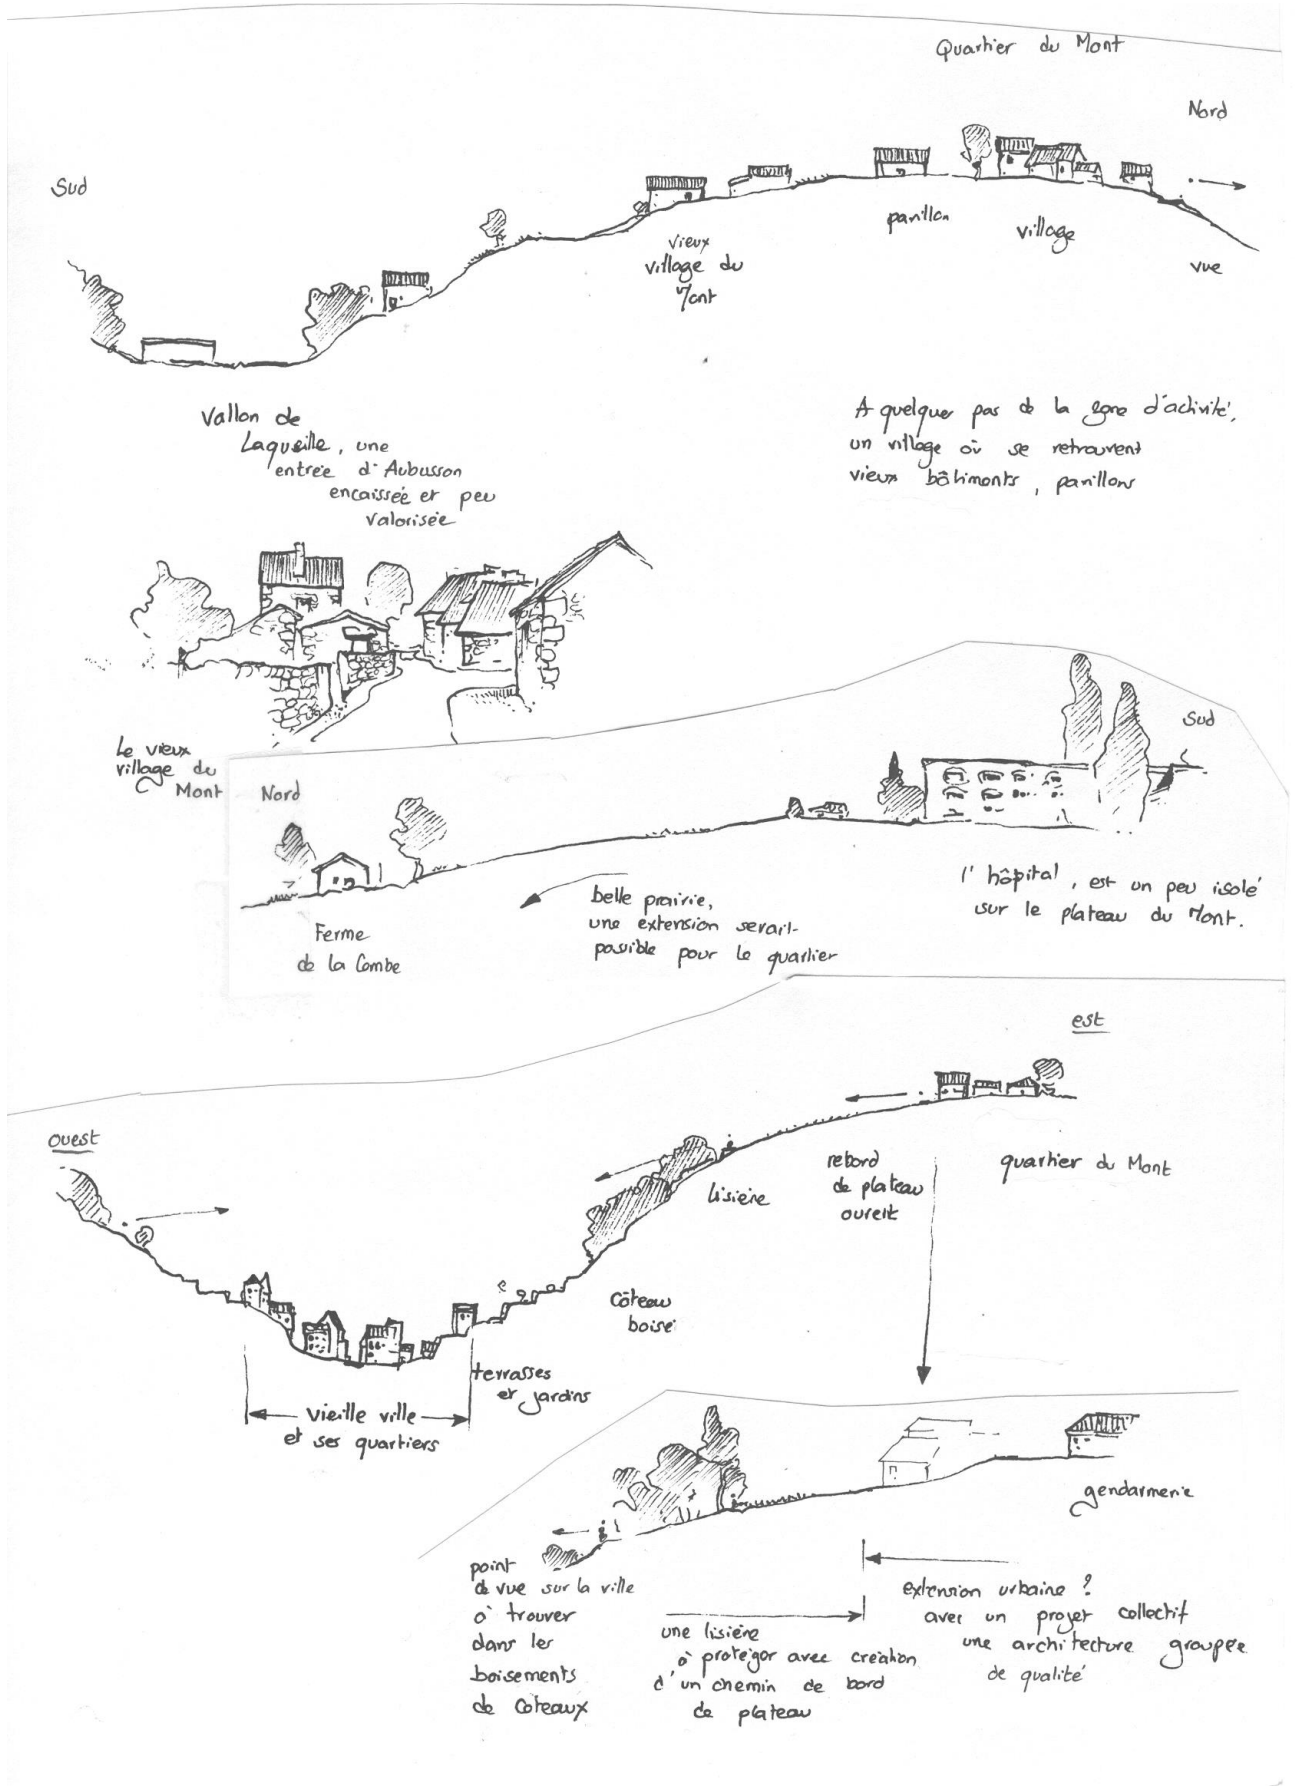 Quartier du Mont
Nord
Sud
pavillon
village
vieux
village du
Mont
vue
Vallon de
Laqueille, une
entrée d'Aubusson
encaissée et peu
valorisée
A quelques pas de la zone d'activité,
un village où se retrouvent
vieux bâtiments, pavillons
Le vieux
village du
Mont
Nord
Sud
Ferme
de la Combe
belle prairie,
une extension serait
possible pour le quartier
l'hôpital, est un peu isolé
sur le plateau du Mont.
est
ouest
rebord
de plateau
ouvert
quartier du Mont
lisière
Côteau
boisé
terrasses
et jardins
vieille ville
et ses quartiers
gendarmerie
point
de vue sur la ville
à trouver
dans les
boisements
de côteaux
une lisière
à protéger avec création
d'un chemin de bord
de plateau
extension urbaine ?
avec un projet collectif
une architecture groupée
de qualité